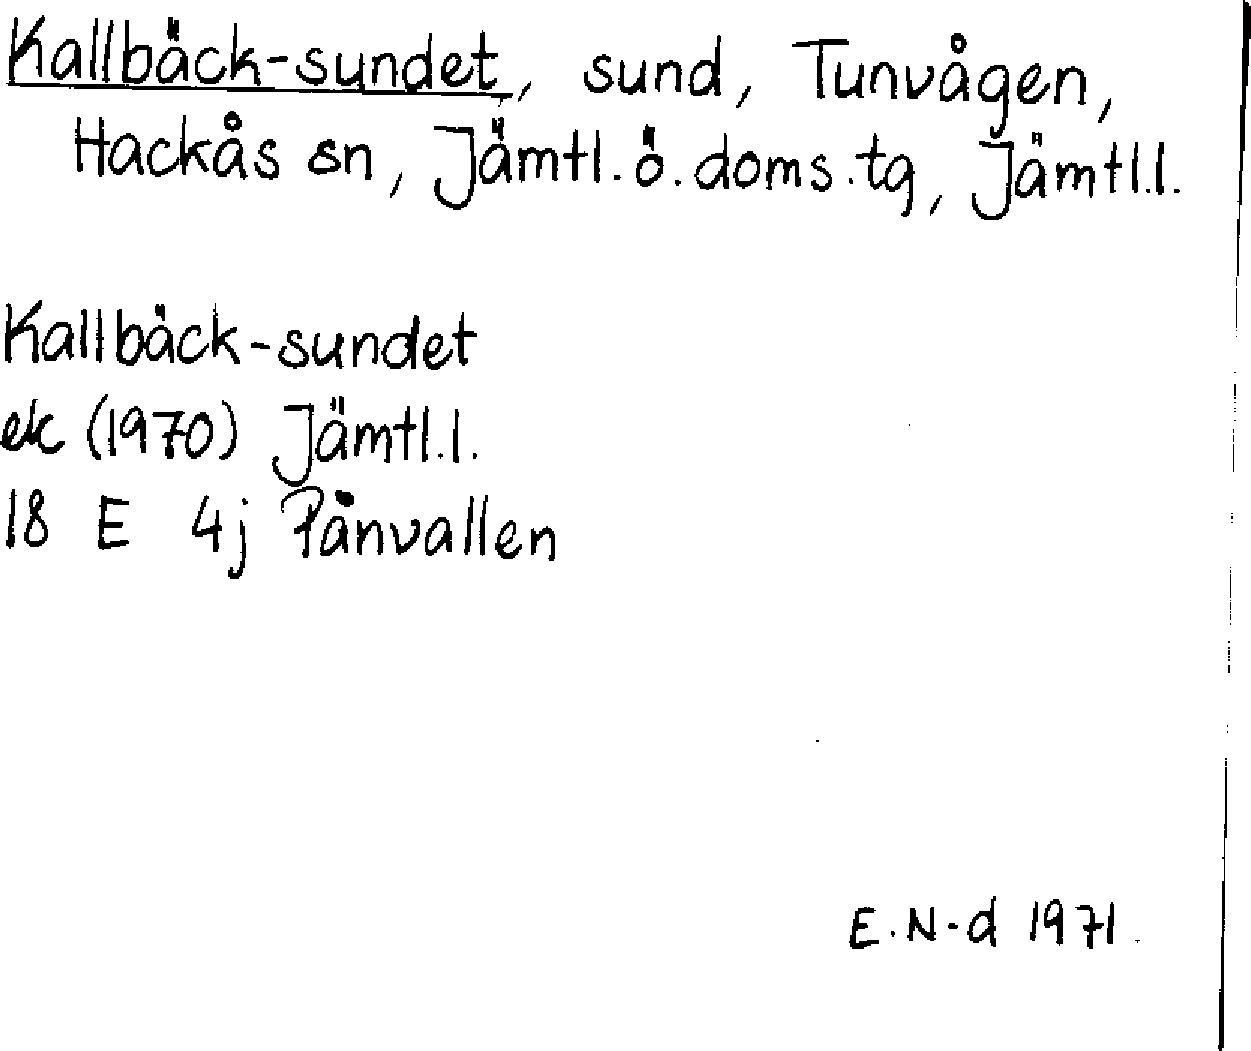 Kallbäck-sundet, sund, Tunvågen,
Hackås sn, Jämtl. ö. doms. tg, Jämtl.l.
Kallbäck-sundet
ek (1970) Jämtl.l.
18 E 4j Pånvallen
E. N-d 1971.